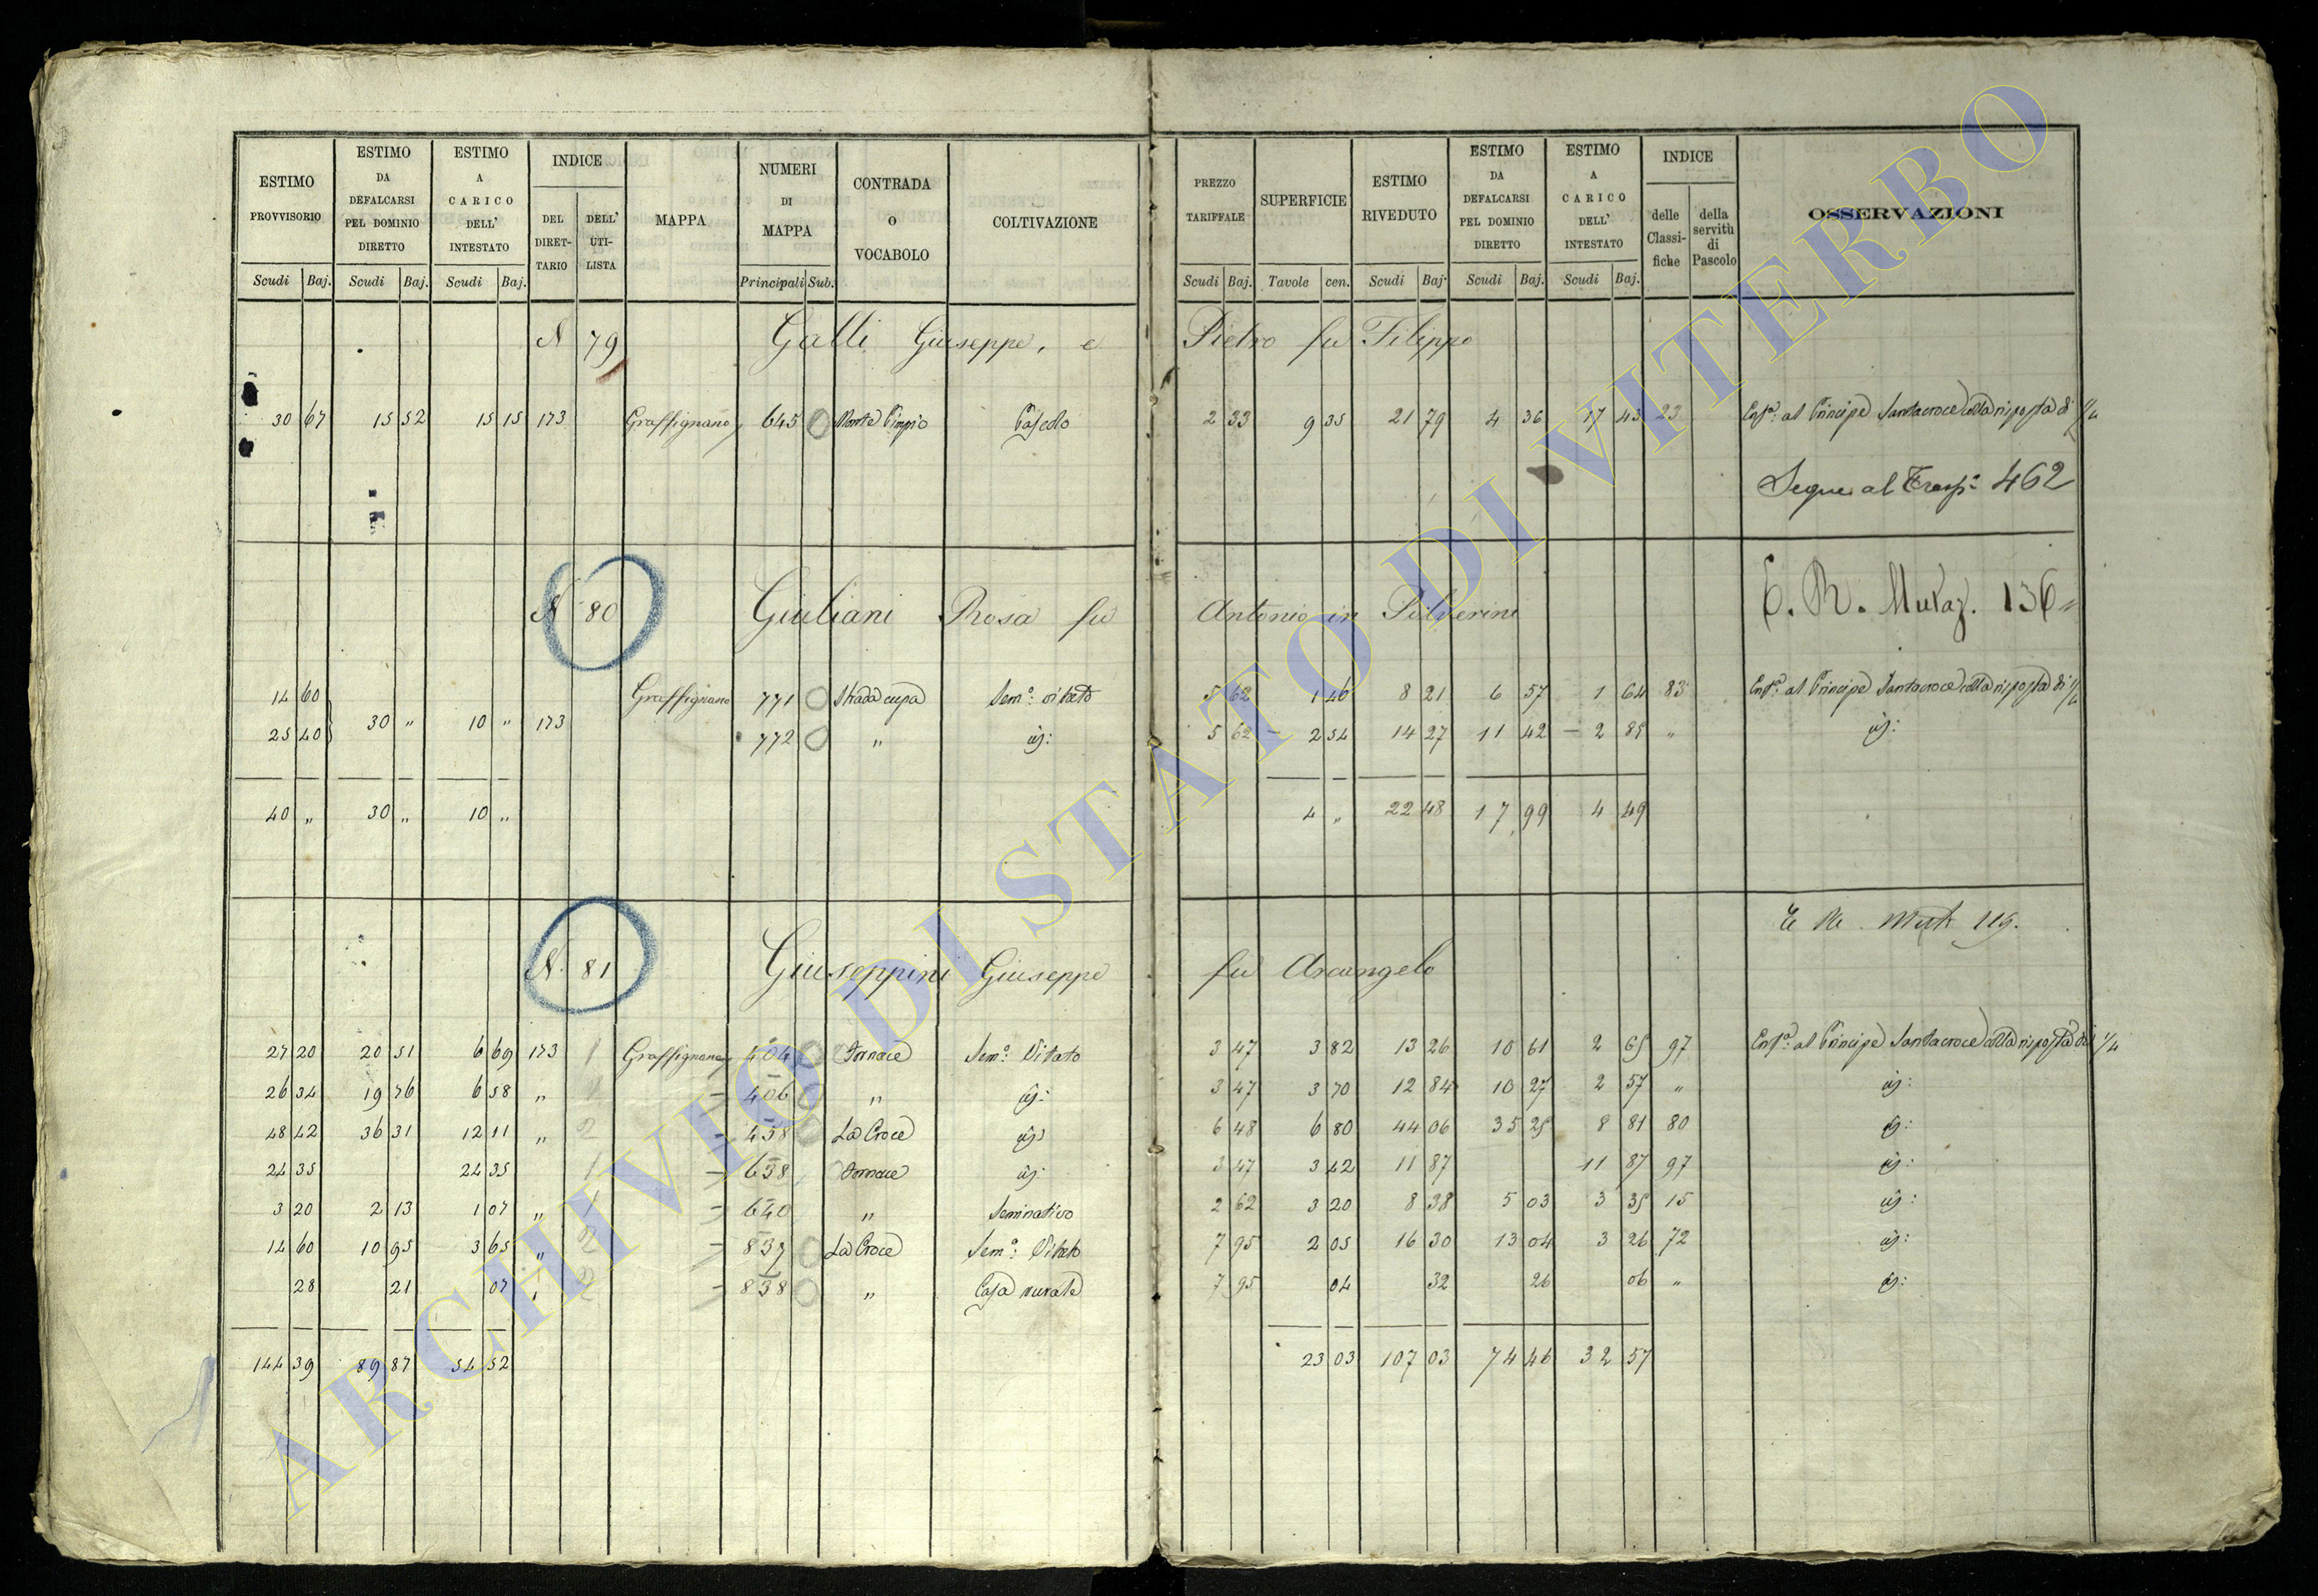 ESTIMO PROVVISORIO | ESTIMO DA DEFALCARSI PEL DOMINIO DIRETTO | ESTIMO A CARICO DELL' INTESTATO | INDICE | MAPPA | NUMERI DI MAPPA | CONTRADA O VOCABOLO | COLTIVAZIONE | PREZZO TARIFFALE | SUPERFICIE | ESTIMO RIVEDUTO | ESTIMO DA DEFALCARSI PEL DOMINIO DIRETTO | ESTIMO A CARICO DELL' INTESTATO | INDICE | OSSERVAZIONI
DEL DIRET-TARIO | DELL' UTI-LISTA | delle Classi-fiche | della servitù di Pascolo
Scudi Baj. Scudi Baj. Scudi Baj. Principali Sub. Scudi Baj. Tavole cen. Scudi Baj. Scudi Baj. Scudi Baj.
N 79 Galli Giuseppe, e Pietro fu Filippo
30 67 15 52 15 15 173 Graffignano 645 Monte Cimpio Pascolo 2 33 9 35 21 79 4 36 17 43 23 Enfa: al Principe Santacroce colla risposta di 1/4
Segue al Trasp: 462
E. R. Mutaz. 136
N 80 Giuliani Rosa fu Antonio in Pulverini
14 60 Graffignano 771 Strada cupa Sem: vitato 5 62 1 46 8 21 6 57 1 64 83 Enfa: al Principe Santacroce colla risposta di 1/4
25 40 30 " 10 " 173 772 " id: 5 62 2 54 14 27 11 42 2 85 " id:
40 " 30 " 10 " 4 " 22 48 17 99 4 49
E Re Mut 119.
N. 81 Giuseppini Giuseppe fu Arcangelo
27 20 20 51 6 69 173 1 Graffignano 404 Fornace Sem: Vitato 3 47 3 82 13 26 10 61 2 65 97 Enfa: al Principe Santacroce colla risposta di 1/4
26 34 19 76 6 58 " 1 406 " id: 3 47 3 70 12 84 10 27 2 57 " id:
48 42 36 31 12 11 " 2 458 La Croce id: 6 48 6 80 44 06 35 25 8 81 80 id:
24 35 24 35 1 638 Fornace id: 3 47 3 42 11 87 11 87 97 id:
3 20 2 13 1 07 " 1 640 " Seminativo 2 62 3 20 8 38 5 03 3 35 15 id:
14 60 10 95 3 65 " 2 837 La Croce Sem: Vitato 7 95 2 05 16 30 13 04 3 26 72 id:
28 21 07 " 2 838 " Casa rurale 7 95 04 32 26 06 " id:
144 39 89 87 54 52 23 03 107 03 74 46 32 57
ARCHIVIO DI STATO DI VITERBO